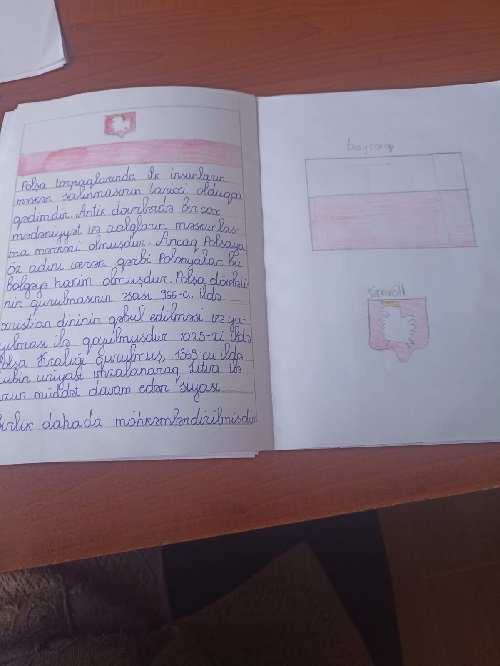 Polşa torpaqlarında ilk insanların
məskən salınmasının tarixi olduqca
qədimdir. Antik dövrlərdə bir çox
mədəniyyət və xalqların məskunlaş-
ma mərkəzi olmuşdur. Ancaq Polşaya
öz adını verən qərbi Polyanlar bu
bölgəyə hakim olmuşdur. Polşa dövləti-
nin qurulmasının əsası 966-cı ildə
xristian dininin qəbul edilməsi və ya-
yılması ilə qoyulmuşdur 1025-ci ildə
Polşa Krallığı qurulmuş, 1569 cu ildə
Lublin uniyası imzalanaraq Litva ilə
uzun müddət davam edən siyasi
birlik dahada möhkəmləndirilmişdir
bayraq
simvoll